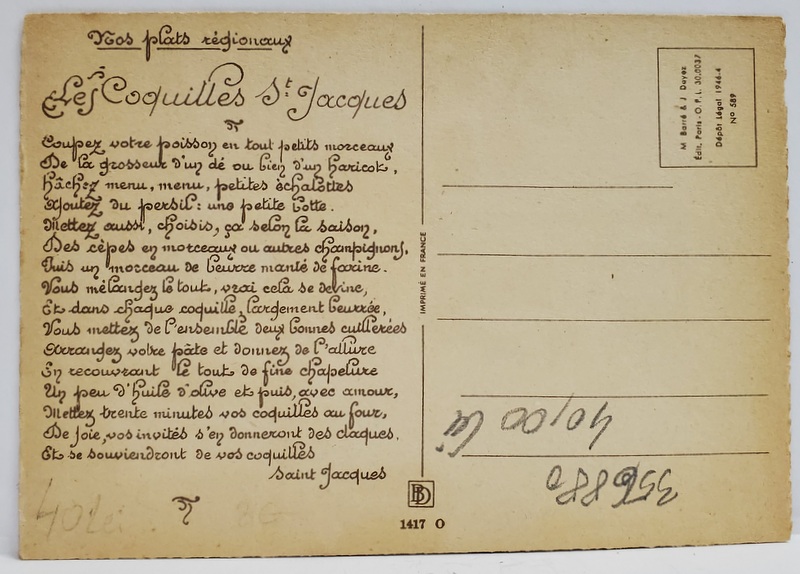 Nos plats régionaux
Les Coquilles St. Jacques
Coupez votre poisson en tout petits morceaux
De la grosseur d'un dé ou bien d'un haricot,
Hâchez menu, menu, petites échalottes
Ajoutez du persil : une petite botte.
Mettez aussi, choisis, ça selon la saison,
Des cèpes en morceaux ou autres champignons,
Puis un morceau de beurre manié de farine.
Vous mélangez le tout, vrai cela se devine,
Et dans chaque coquille, largement beurrée,
Vous mettez de l'ensemble deux bonnes cuillerées
Arrangez votre pâte et donnez de l'allure
En recouvrant le tout de fine chapelure
Un peu d'huile d'olive et puis, avec amour,
Mettez trente minutes vos coquilles au four,
De joie, vos invités s'en donneront des claques.
Et se souviendront de vos coquilles
Saint Jacques
40 lei
IMPRIMÉ EN FRANCE
BD
1417 O
M Barré & J Dayez
Édit. Paris - O.P.L. 30.0037
Dépôt Légal 1946-4
No 589
40,00 lei